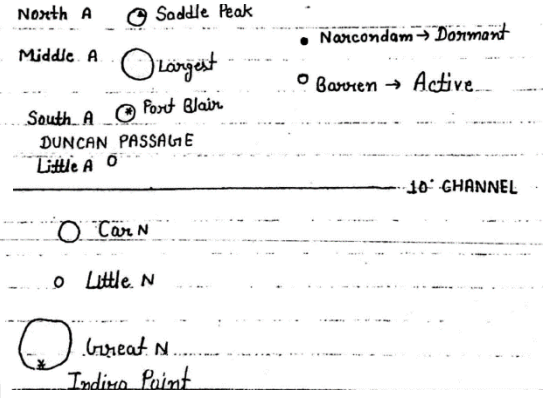 North A Saddle Peak
• Narcondam → Dormant
Middle A Largest
Barren → Active
South A Port Blair
DUNCAN PASSAGE
Little A
10° CHANNEL
Car N
Little N
Great N
Indira Point